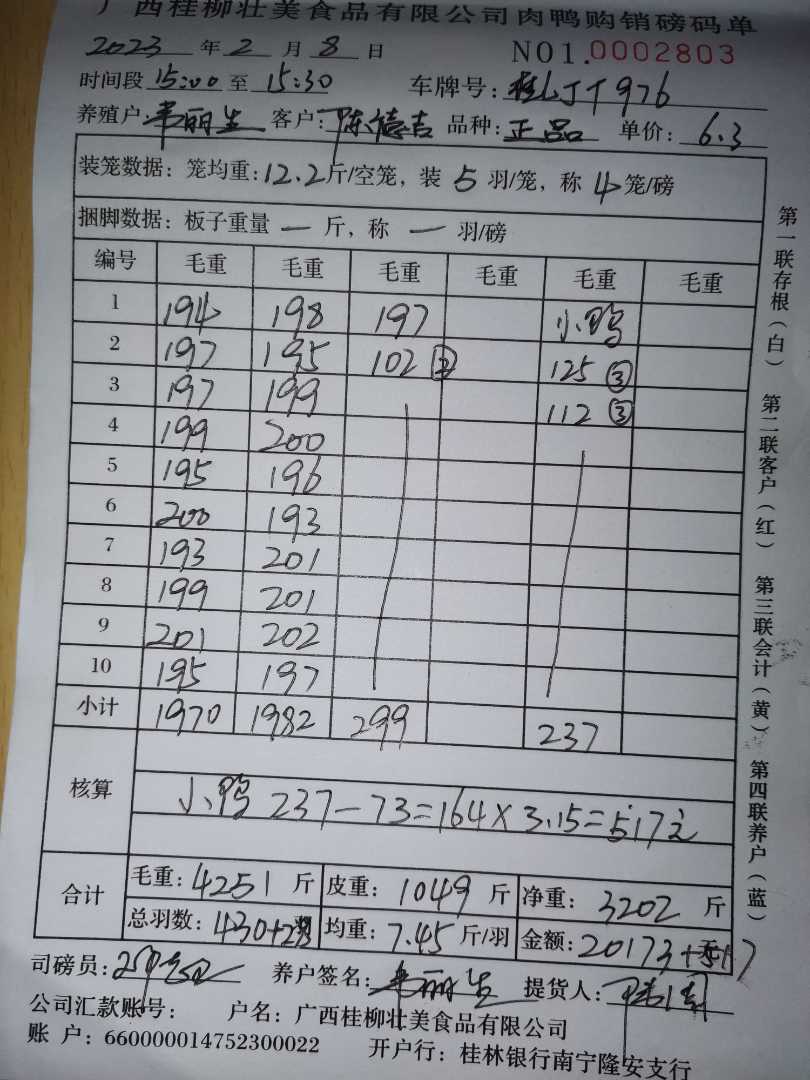 广西桂柳壮美食品有限公司肉鸭购销磅码单
2023 年 2 月 8 日 NO1.0002803
时间段 15:00 至 15:30 车牌号: 976
养殖户 韦丽生 客户: 陈德吉 品种: 正品 单价: 6.3
装笼数据: 笼均重: 12.2 斤/空笼, 装 5 羽/笼, 称 4 笼/磅
捆脚数据: 板子重量 一 斤, 称 一 羽/磅
编号 毛重 毛重 毛重 毛重 毛重 毛重
1 194 198 197 小鸭
2 197 195 102 ② 125 ③
3 197 199 112 ③
4 199 200
5 195 196
6 200 193
7 193 201
8 199 201
9 201 202
10 195 197
小计 1970 1982 299 237
核算 小鸭 237-73=164×3.15=517元
合计 毛重: 4251 斤 皮重: 1049 斤 净重: 3202 斤
总羽数: 430+2 均重: 7.45 斤/羽 金额: 20173+517
司磅员: 养户签名: 韦丽生 提货人:
公司汇款账号: 户名: 广西桂柳壮美食品有限公司
账 户: 660000014752300022 开户行: 桂林银行南宁隆安支行
第一联存根(白) 第二联客户(红) 第三联会计(黄) 第四联养户(蓝)